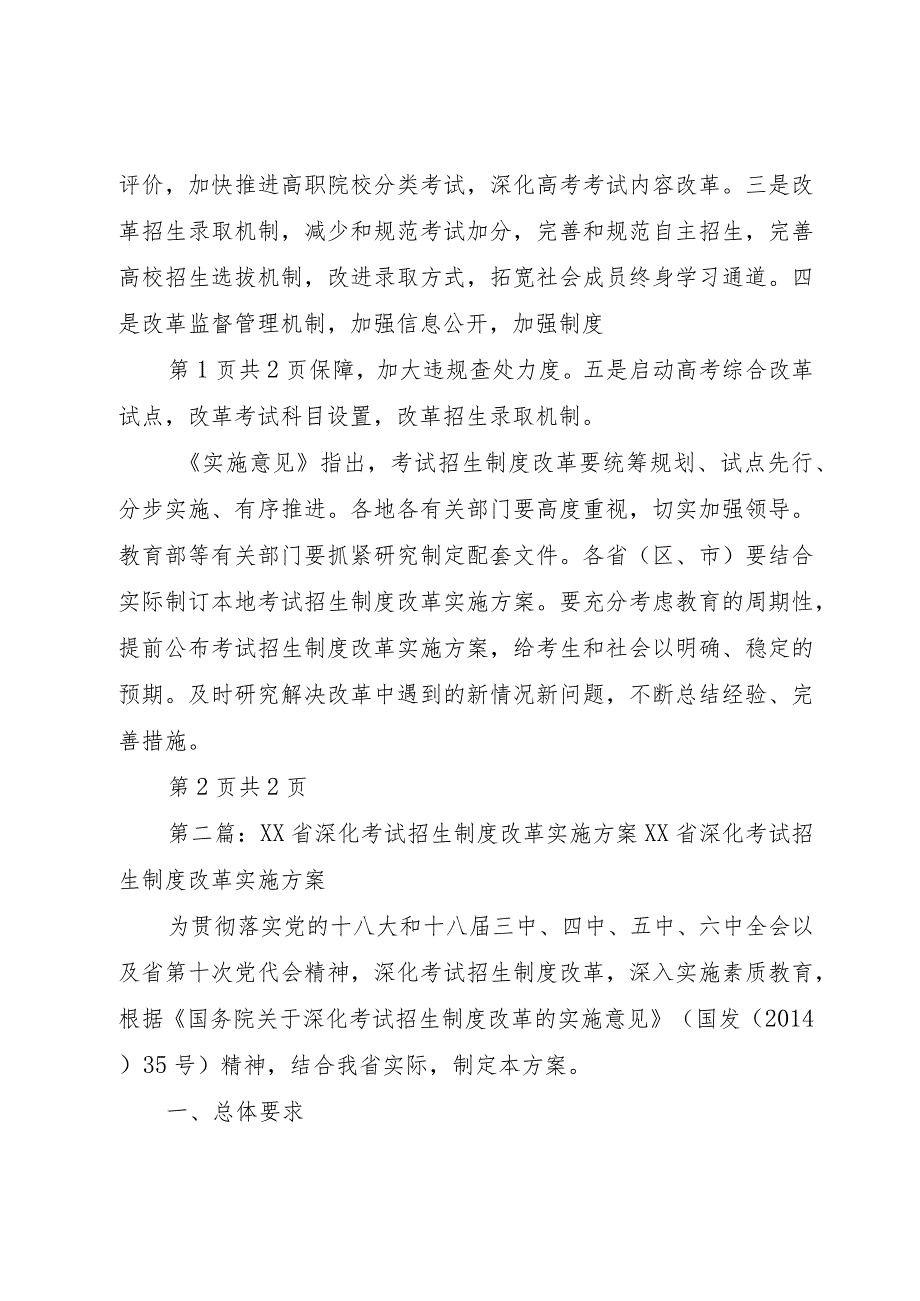 评价，加快推进高职院校分类考试，深化高考考试内容改革。三是改
革招生录取机制，减少和规范考试加分，完善和规范自主招生，完善
高校招生选拔机制，改进录取方式，拓宽社会成员终身学习通道。四
是改革监督管理机制，加强信息公开，加强制度
第1页共2页保障，加大违规查处力度。五是启动高考综合改革
试点，改革考试科目设置，改革招生录取机制。
《实施意见》指出，考试招生制度改革要统筹规划、试点先行、
分步实施、有序推进。各地各有关部门要高度重视，切实加强领导。
教育部等有关部门要抓紧研究制定配套文件。各省（区、市）要结合
实际制订本地考试招生制度改革实施方案。要充分考虑教育的周期性，
提前公布考试招生制度改革实施方案，给考生和社会以明确、稳定的
预期。及时研究解决改革中遇到的新情况新问题，不断总结经验、完
善措施。
第2页共2页
第二篇：XX省深化考试招生制度改革实施方案XX省深化考试招
生制度改革实施方案
为贯彻落实党的十八大和十八届三中、四中、五中、六中全会以
及省第十次党代会精神，深化考试招生制度改革，深入实施素质教育，
根据《国务院关于深化考试招生制度改革的实施意见》（国发（2014
）35号）精神，结合我省实际，制定本方案。
一、总体要求